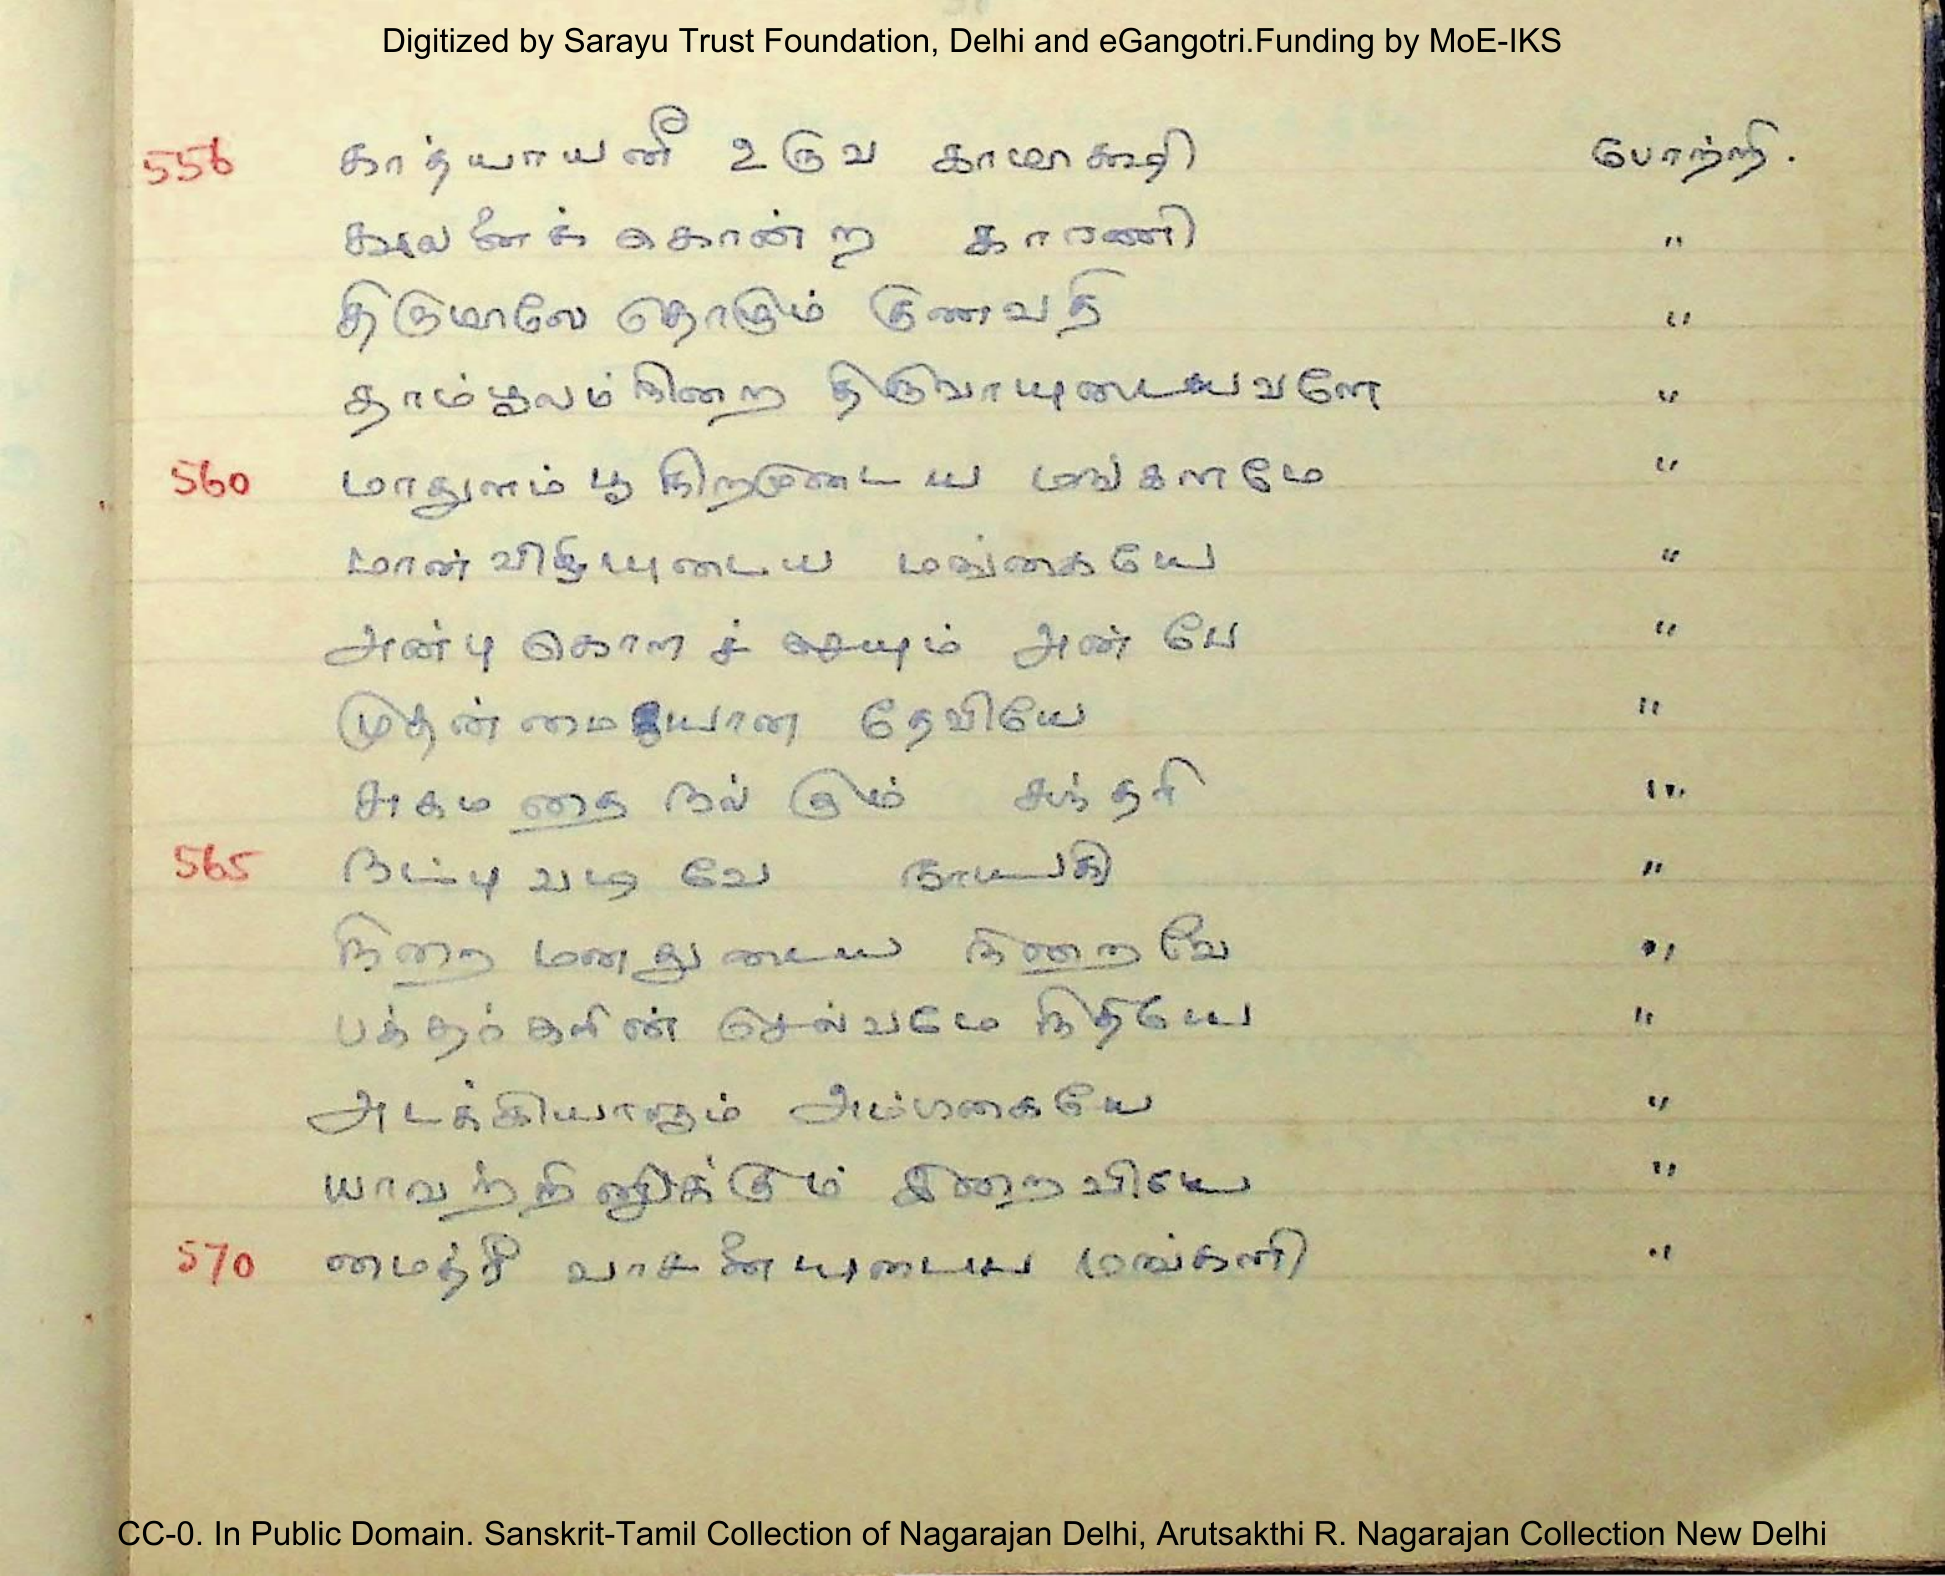 Digitized by Sarayu Trust Foundation, Delhi and eGangotri.Funding by MoE-IKS
556 காத்யாயனீ உருவ காமாக்ஷி போற்றி.
காலனைக் கொன்ற காரணி "
திருமாலே தொழும் குணவதி "
தாம்பூலம் நிறை திருவாயுடையவளே "
560 மாதுளம் பூ நிறமுடைய மங்களமே "
மான் விழியுடைய மங்கையே "
அன்பு கொளச் செயும் அன்பே "
முதன்மையான தேவியே "
சுகமதை நல்கும் சுந்தரி "
565 நட்பு வடிவே நாயகி "
நிறை மனதுடைய நிறைவே "
பக்தர்களின் செல்வமே நிதியே "
அடக்கியாளும் அம்பிகையே "
யாவற்றிலுமிருக்கும் இறைவியே "
570 மைத்ரீ வாசனையுடைய மங்களி "
CC-0. In Public Domain. Sanskrit-Tamil Collection of Nagarajan Delhi, Arutsakthi R. Nagarajan Collection New Delhi